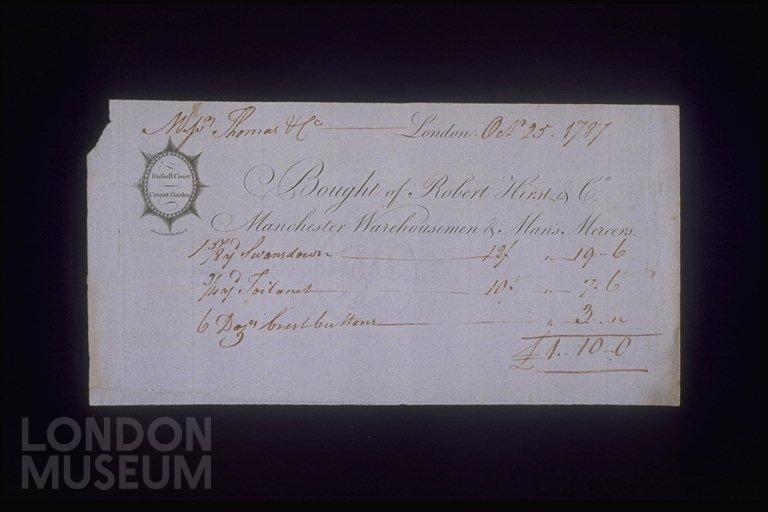 Messrs Thomas & Co London Octr 25. 1787
Russell Court
Covent Garden
Bought of Robert Hirst & Co
Manchester Warehousemen & Mans Mercers.
1 yd Swansdown 12/ " 19 - 6
3/4 yd Toilanet 10/ " 7. 6
6 Dozn Brest buttons " 3 - "
£ 1 - 10 - 0
LONDON
MUSEUM